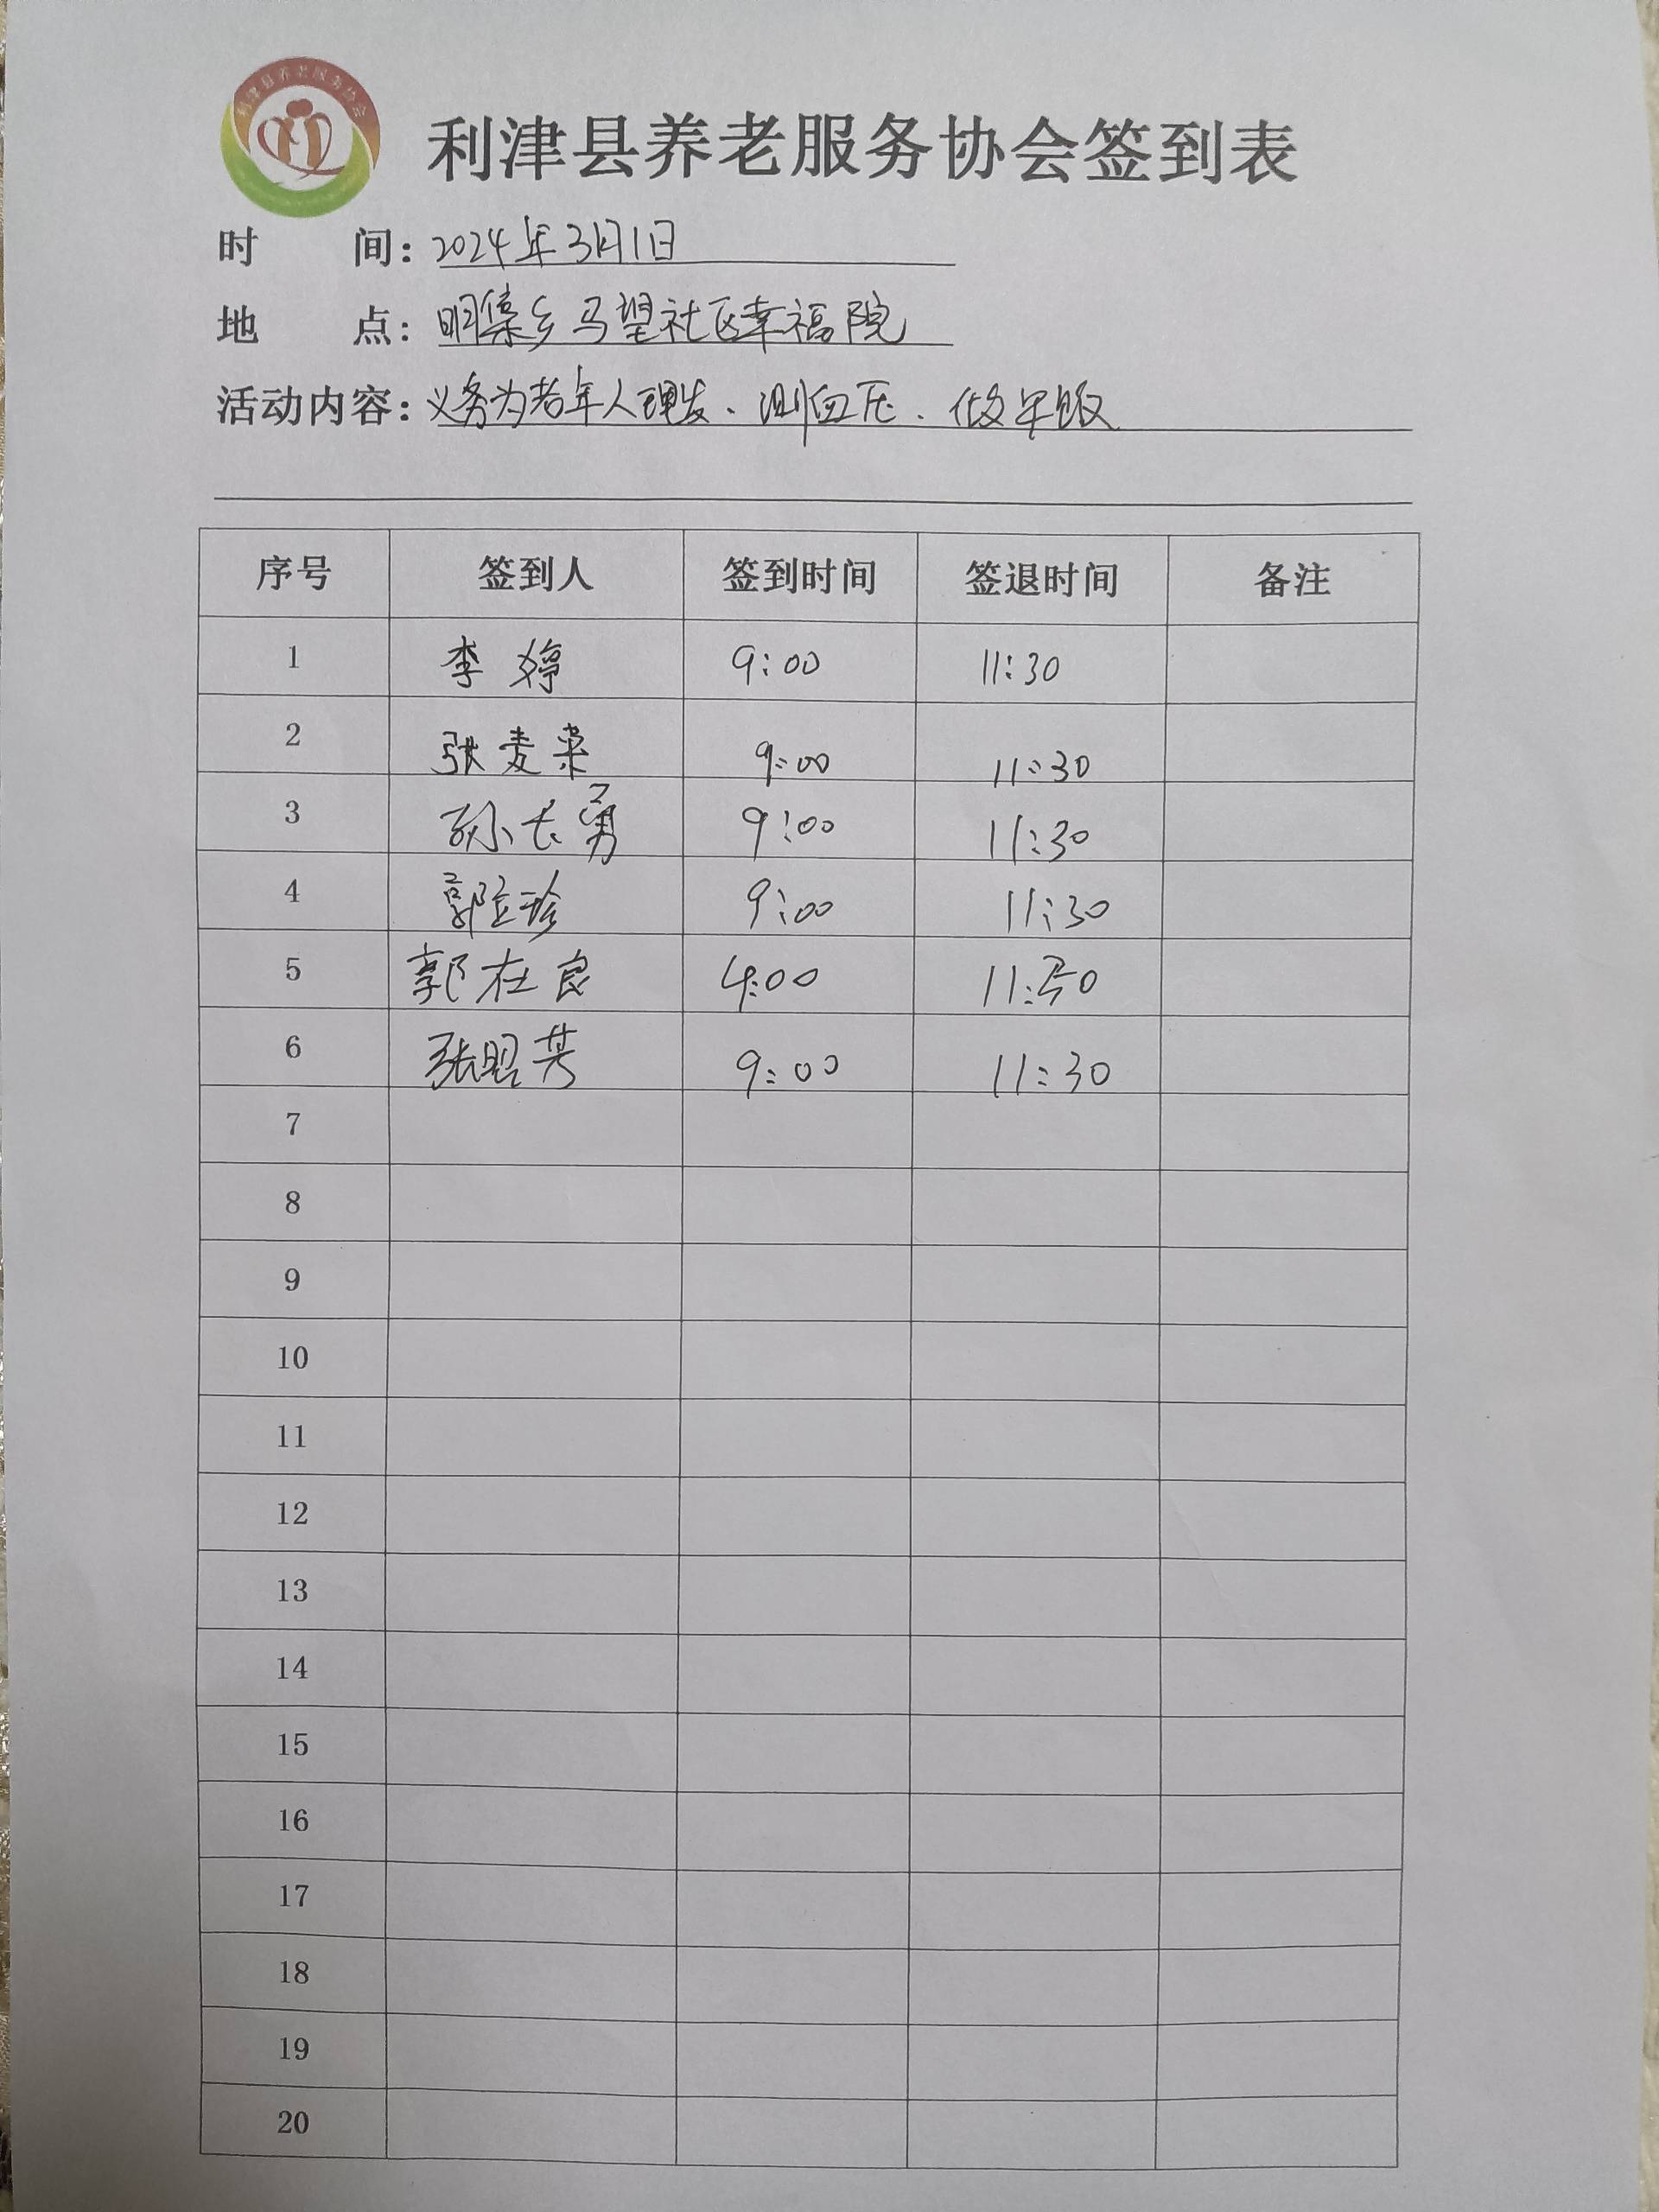 利津县养老服务协会
利津县养老服务协会签到表
时 间: 2024年3月1日
地 点: 明集乡马望社区幸福院
活动内容: 义务为老年人理发、测血压、做午饭
序号 签到人 签到时间 签退时间 备注
1 李婷 9:00 11:30
2 张麦荣 9:00 11:30
3 孙长勇 9:00 11:30
4 郭立珍 9:00 11:30
5 郭在良 9:00 11:30
6 张昭芳 9:00 11:30
7
8
9
10
11
12
13
14
15
16
17
18
19
20